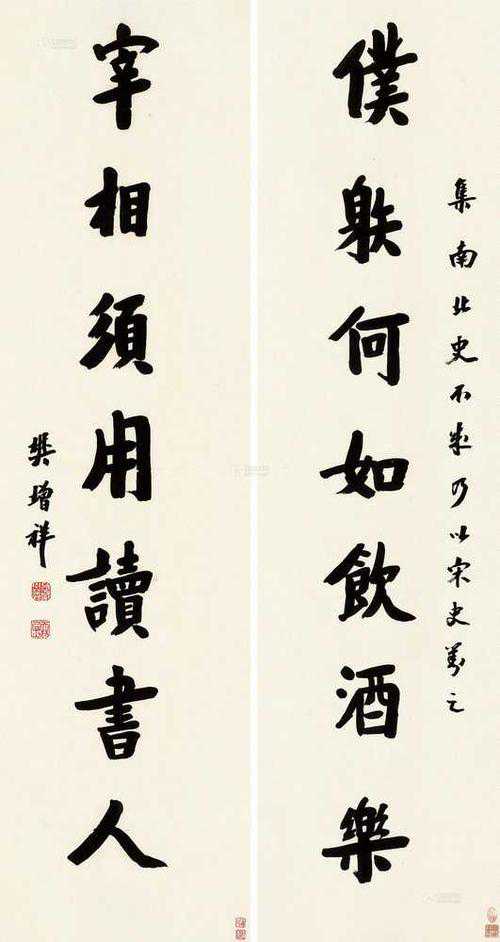 集南北史不成乃以宋史對之
僕䠶何如飲酒樂
宰相須用讀書人
樊增祥